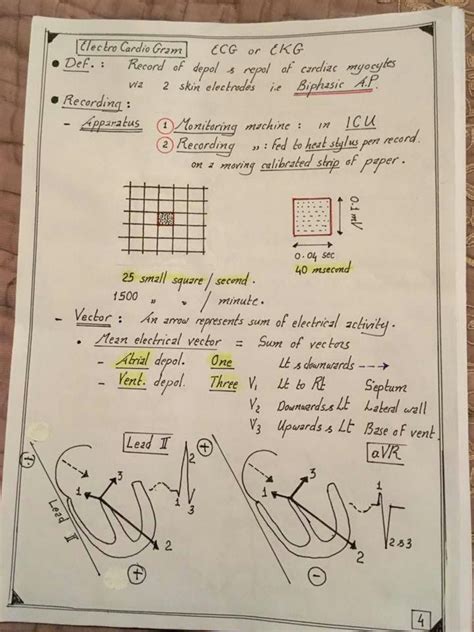 Electro Cardio Gram ECG or EKG
• Def. : Record of depol & repol of cardiac myocytes
via 2 skin electrodes i.e Biphasic A.P
• Recording :
- Apparatus 1 Monitoring machine : in ICU
2 Recording " : Fed to heat stylus pen record.
on a moving calibrated strip of paper.
0.1 mV
0.04 sec
40 msecond
25 small square / second.
1500 " " / minute.
- Vector : An arrow represents sum of electrical activity.
• Mean electrical vector = Sum of vectors
- Atrial depol. One Lt & downwards -->
- Vent. depol. Three V1 Lt to Rt Septum
V2 Downwards & Lt Lateral wall
V3 Upwards & Lt Base of vent.
Lead II
aVR
-
+
Lead II
1
2
3
+
1
2
3
+
1
2
3
-
1
2 & 3
4